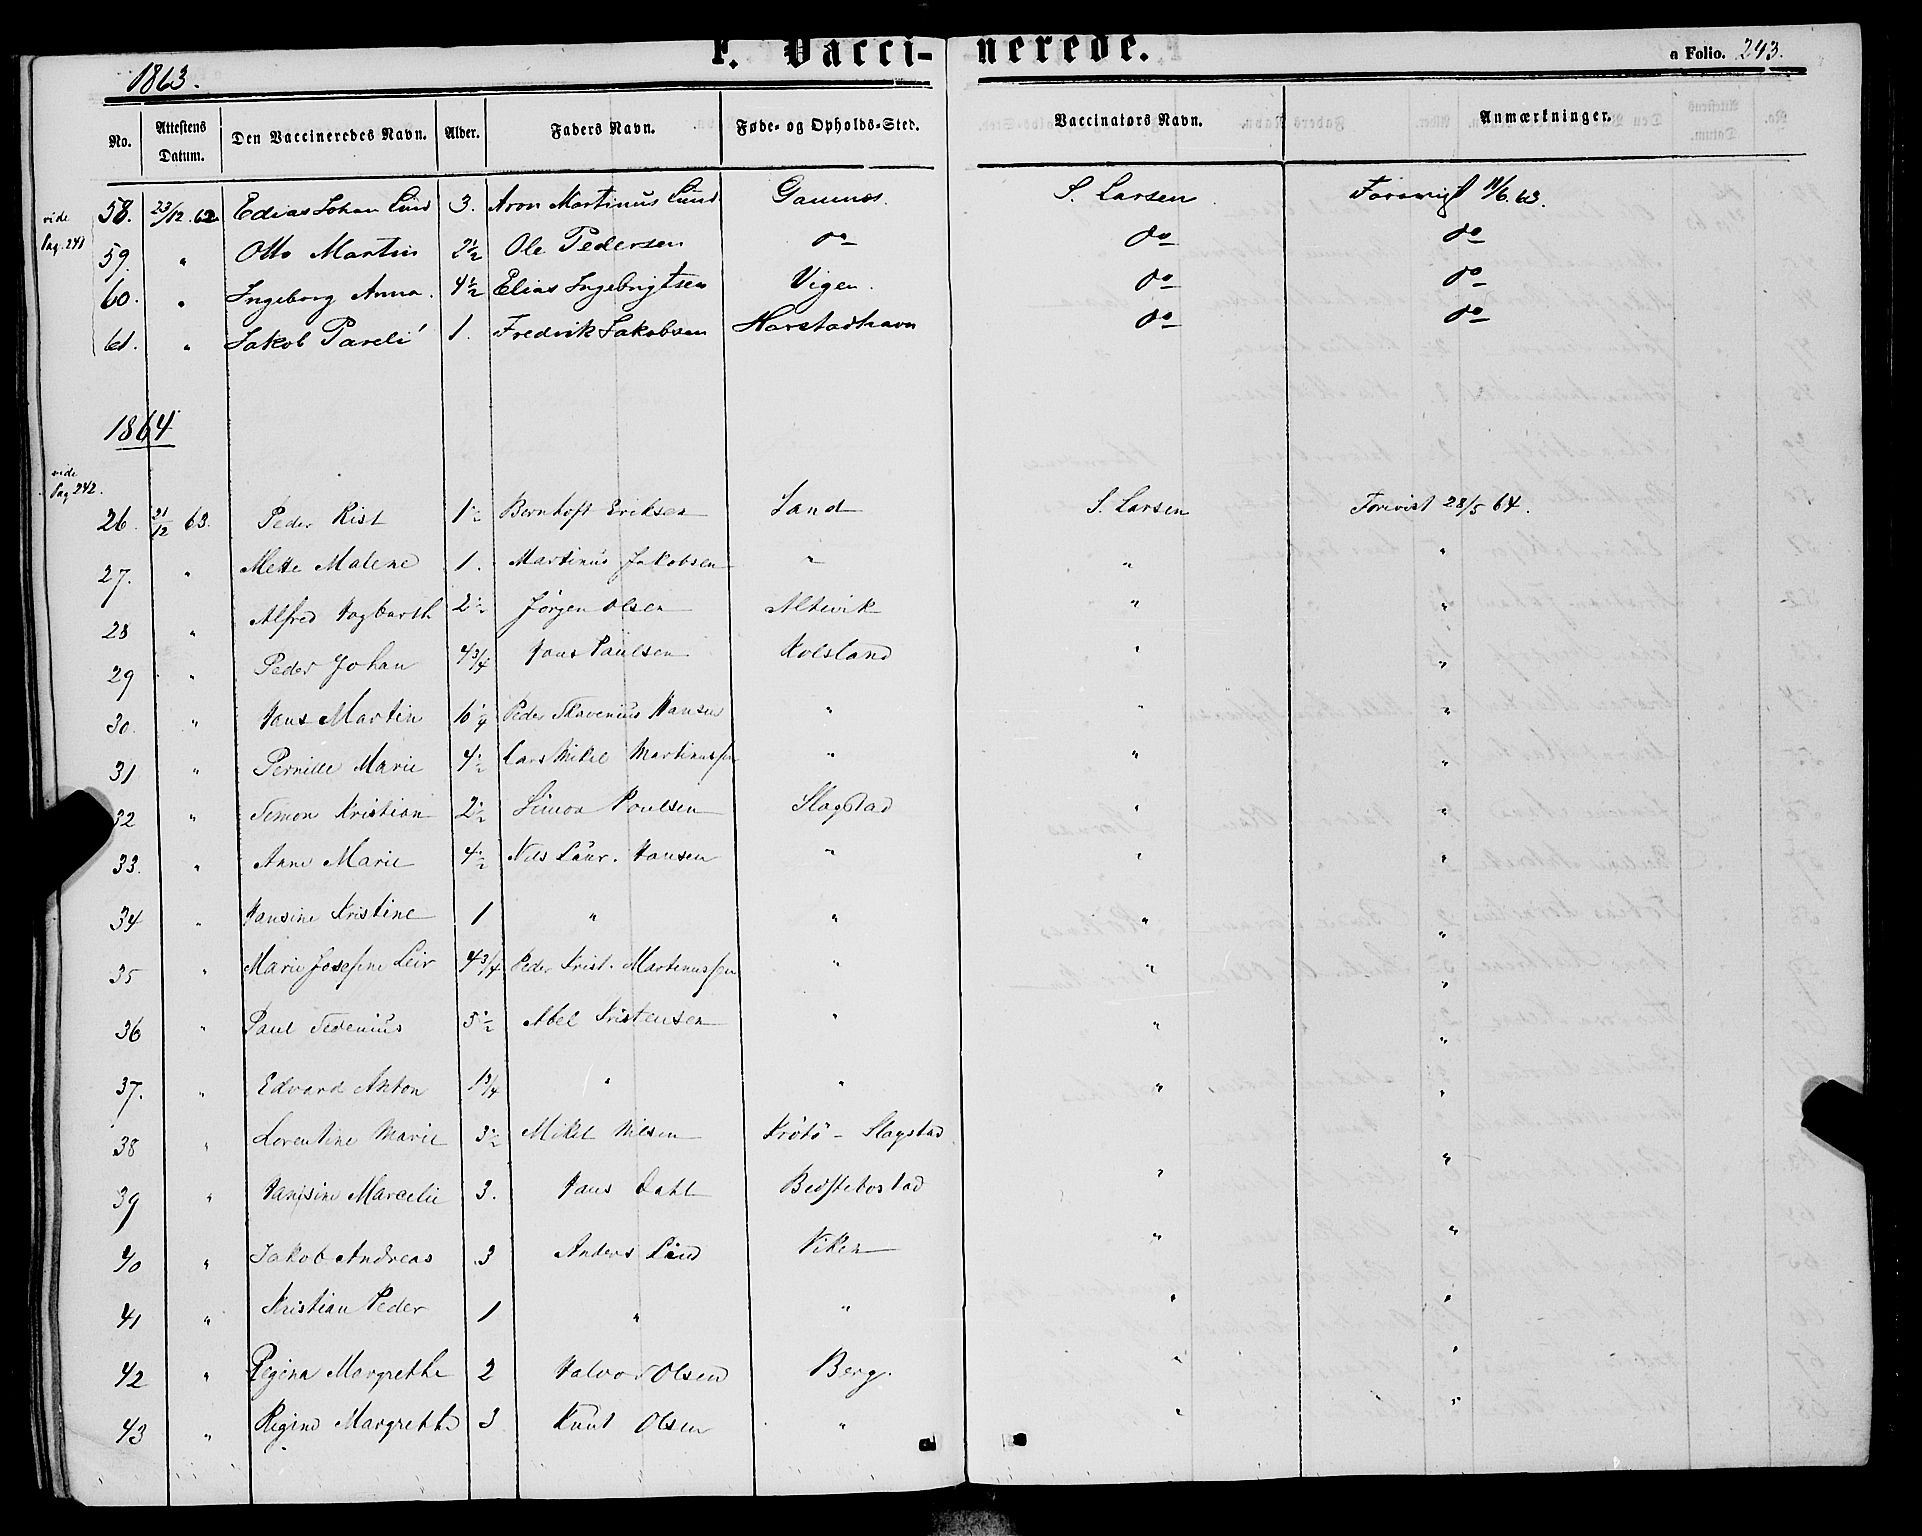 F. Vaccinerede.
a Folio. 243.
1863.
No. Attestens Datum. Den Vaccineredes Navn. Alder. Faders Navn. Føde- og Opholds-Sted. Vaccinators Navn. Anmærkninger.
vide Pag. 241
58. 23/12 62 Edias Johan Lund 3. Aron Martinus Lund Gamnes. S. Larsen Forevist 11/6 63.
59. " Otto Martin 2 1/2 Ole Pedersen do do do
60. " Ingeborg Anna. 4 1/2 Elias Ingebrigtsen Vigen. do do
61. " Jakob Pareli 1. Fredrik Jakobsen Harstadhavn do do
1864
vide Pag 242.
26. 21/12 63. Peder Rist 1 1/2 Bernhoft Eriksen Sand S. Larsen Forevist 28/5 64.
27. " Mette Malene 1. Martinus Jakobsen " " "
28 " Alfred Hagbarth 2 1/2 Jørgen Olsen Altevik " "
29 " Peder Johan 4 3/4 Hans Paulsen Kolsland " "
30. " Hans Martin 10 1/4 Peder Skavenius Hansen " " "
31 " Pernille Marie 4 1/2 Lars Mikel Martinussen " " "
32 " Simon Kristian 2 1/2 Simon Poulsen Slagstad " "
33. " Anne Marie 4 1/2 Nils Laur. Hansen " " "
34 " Hansine Kristine 1 " " " "
35 " Marie Josefine Leir 4 3/4 Peder Krist. Martinussen " " "
36 " Paul Tedenius 5 1/2 Abel Kristensen " " "
37. " Edvard Anton 1 3/4 " " " "
38 " Lorentine Marie 3 1/2 Mikel Nilsen Krøtø - Slagstad "
39 " Hansine Marcelie 3. Hans Dahl Bedstebostad " "
40 " Jakob Andreas 3 Anders Lind Viken " "
41 " Kristian Peder 1 " " " "
42 " Regina Margrethe 2 Halvor Olsen Berg. " "
43 " Regine Margrethe 3 Knut Olsen " " "